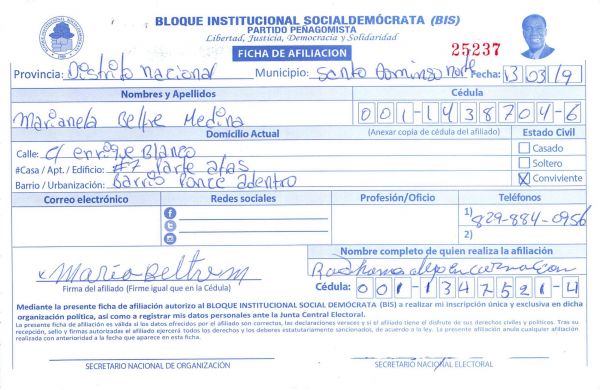 BLOQUE INSTITUCIONAL SOCIALDEMÓCRATA (BIS)
PARTIDO PEÑAGOMISTA
Libertad, Justicia, Democracia y Solidaridad
FICHA DE AFILIACION
25237
Provincia: Distrito Nacional Municipio: Santo Domingo Norte Fecha: 13/03/19
Nombres y Apellidos Cédula
Marianela Beltre Medina 001-1438704-6
Domicilio Actual (Anexar copia de cédula del afiliado) Estado Civil
Calle: C/ enrique Blanco Casado
#Casa / Apt. / Edificio: #7 Parte atas Soltero
Barrio / Urbanización: Barrio Ponce adentro X Conviviente
Correo electrónico Redes sociales Profesión/Oficio Teléfonos
1) 829-884-0956
2)
Nombre completo de quien realiza la afiliación
Maria Beltre M
Firma del afiliado (Firme igual que en la Cédula) Cédula: 001-1347521-4
Mediante la presente ficha de afiliación autorizo al BLOQUE INSTITUCIONAL SOCIAL DEMÓCRATA (BIS) a realizar mi inscripción única y exclusiva en dicha
organización política, así como a registrar mis datos personales ante la Junta Central Electoral.
La presente ficha de afiliación es válida si los datos ofrecidos por el afiliado son correctos, las declaraciones veraces y si el afiliado tiene el disfrute de sus derechos civiles y políticos. Tras su
recepción, sello y firmas autorizadas el afiliado ejercerá todos los derechos y los deberes estatutariamente sancionados, de acuerdo a la ley. La presente afiliación anula cualquier afiliación
realizada con anterioridad a la fecha que aparece en esta ficha.
SECRETARIO NACIONAL DE ORGANIZACIÓN SECRETARIO NACIONAL ELECTORAL